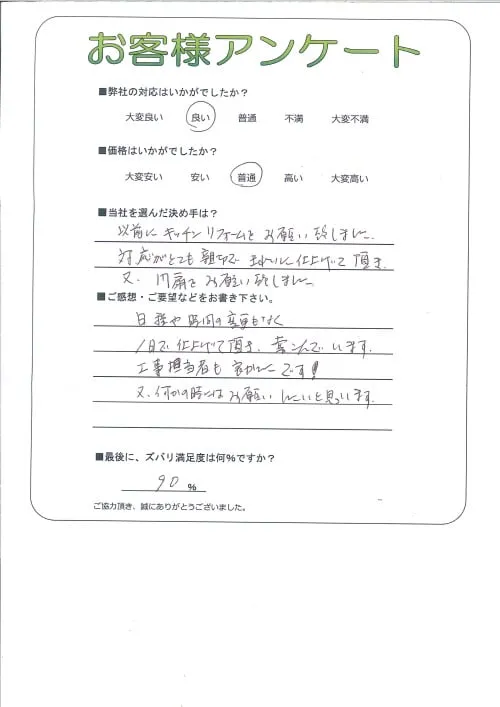 お客様アンケート
■弊社の対応はいかがでしたか？
大変良い 良い 普通 不満 大変不満
■価格はいかがでしたか？
大変安い 安い 普通 高い 大変高い
■当社を選んだ決め手は？
以前に キッチンリフォームを お願い致しました。
対応がとても 親切で きれいに仕上げて 頂き、
又、門扉を お願い致しました
■ご感想・ご要望などをお書き下さい。
日程や時間の変更もなく
1日で仕上げて頂き、喜んでいます。
工事担当者も 良かったです!
又、何かの時には お願い したいと思っています。
■最後に、ズバリ満足度は何％ですか？
90 %
ご協力頂き、誠にありがとうございました。